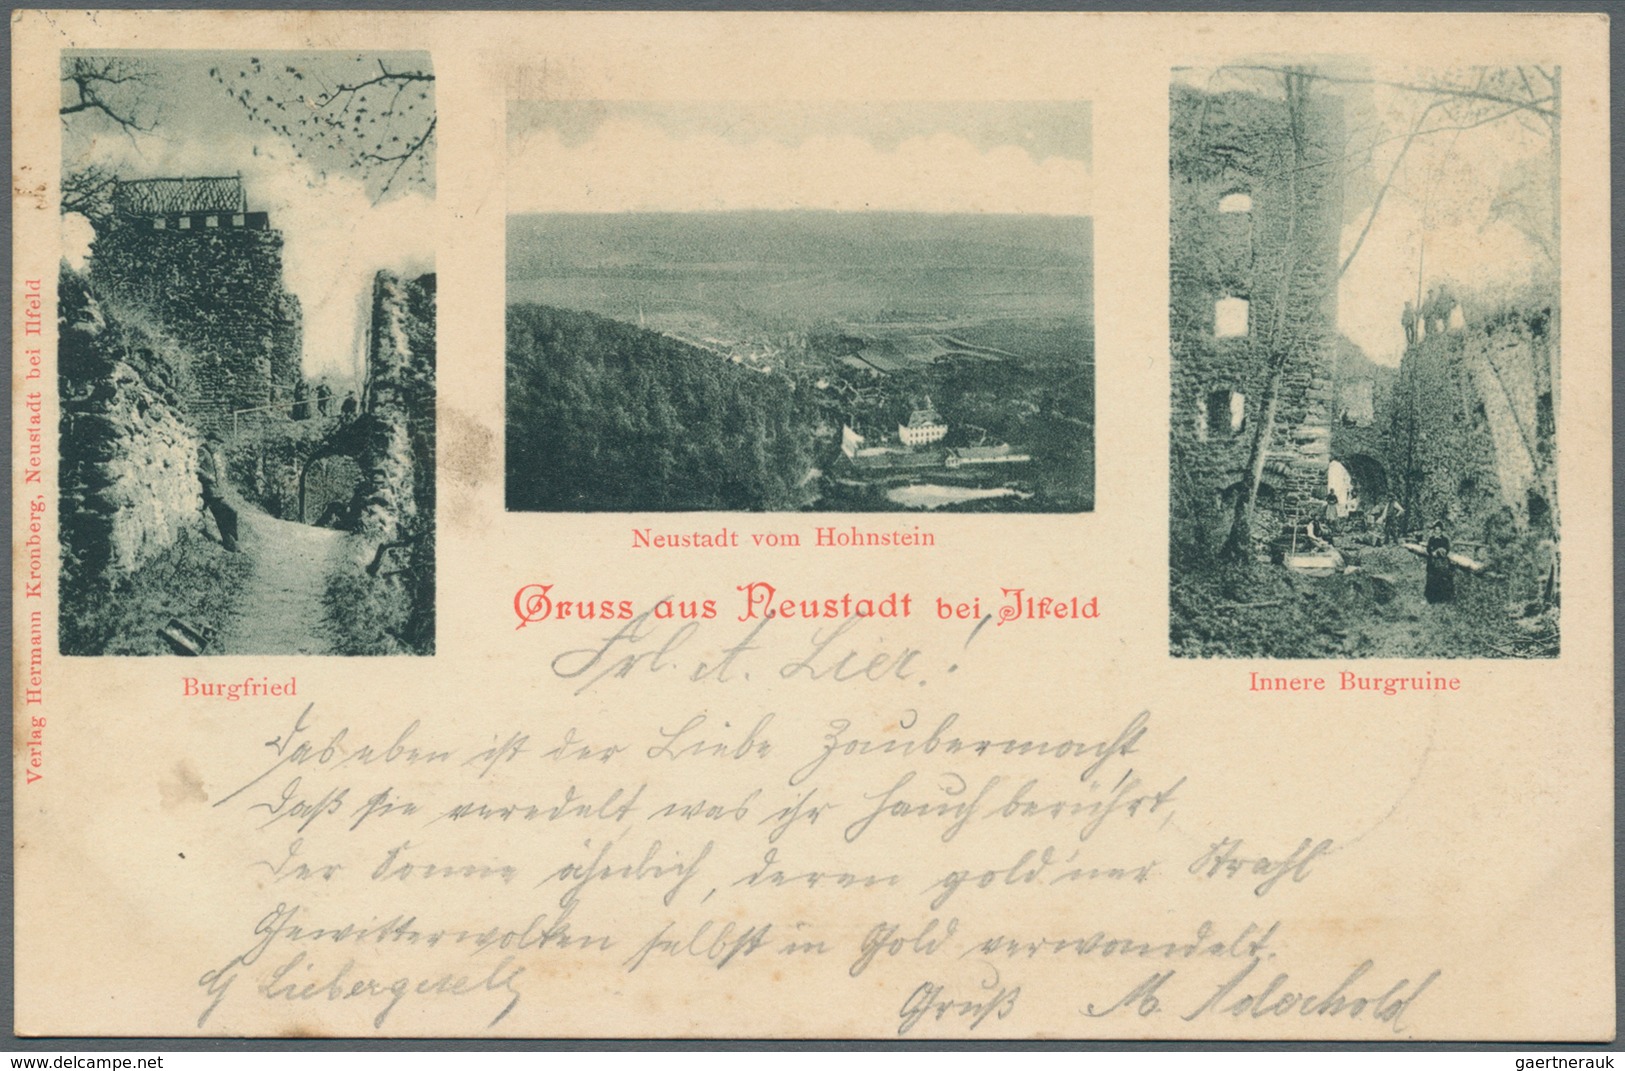 Verlag Hermann Kronberg, Neustadt bei Ilfeld
Burgfried
Neustadt vom Hohnstein
Innere Burgruine
Gruss aus Neustadt bei Ilfeld
Frl. A. Lier!
Das eben ist der Liebe Zaubermacht,
Daß sie veredelt, was ihr Hauch berührt,
Der Sonne ähnlich, deren gold'ner Strahl
Gewitterwolken selbst in Gold verwandelt.
Gruß M. Aderhold
www.philasearch.com
gaertnerauk